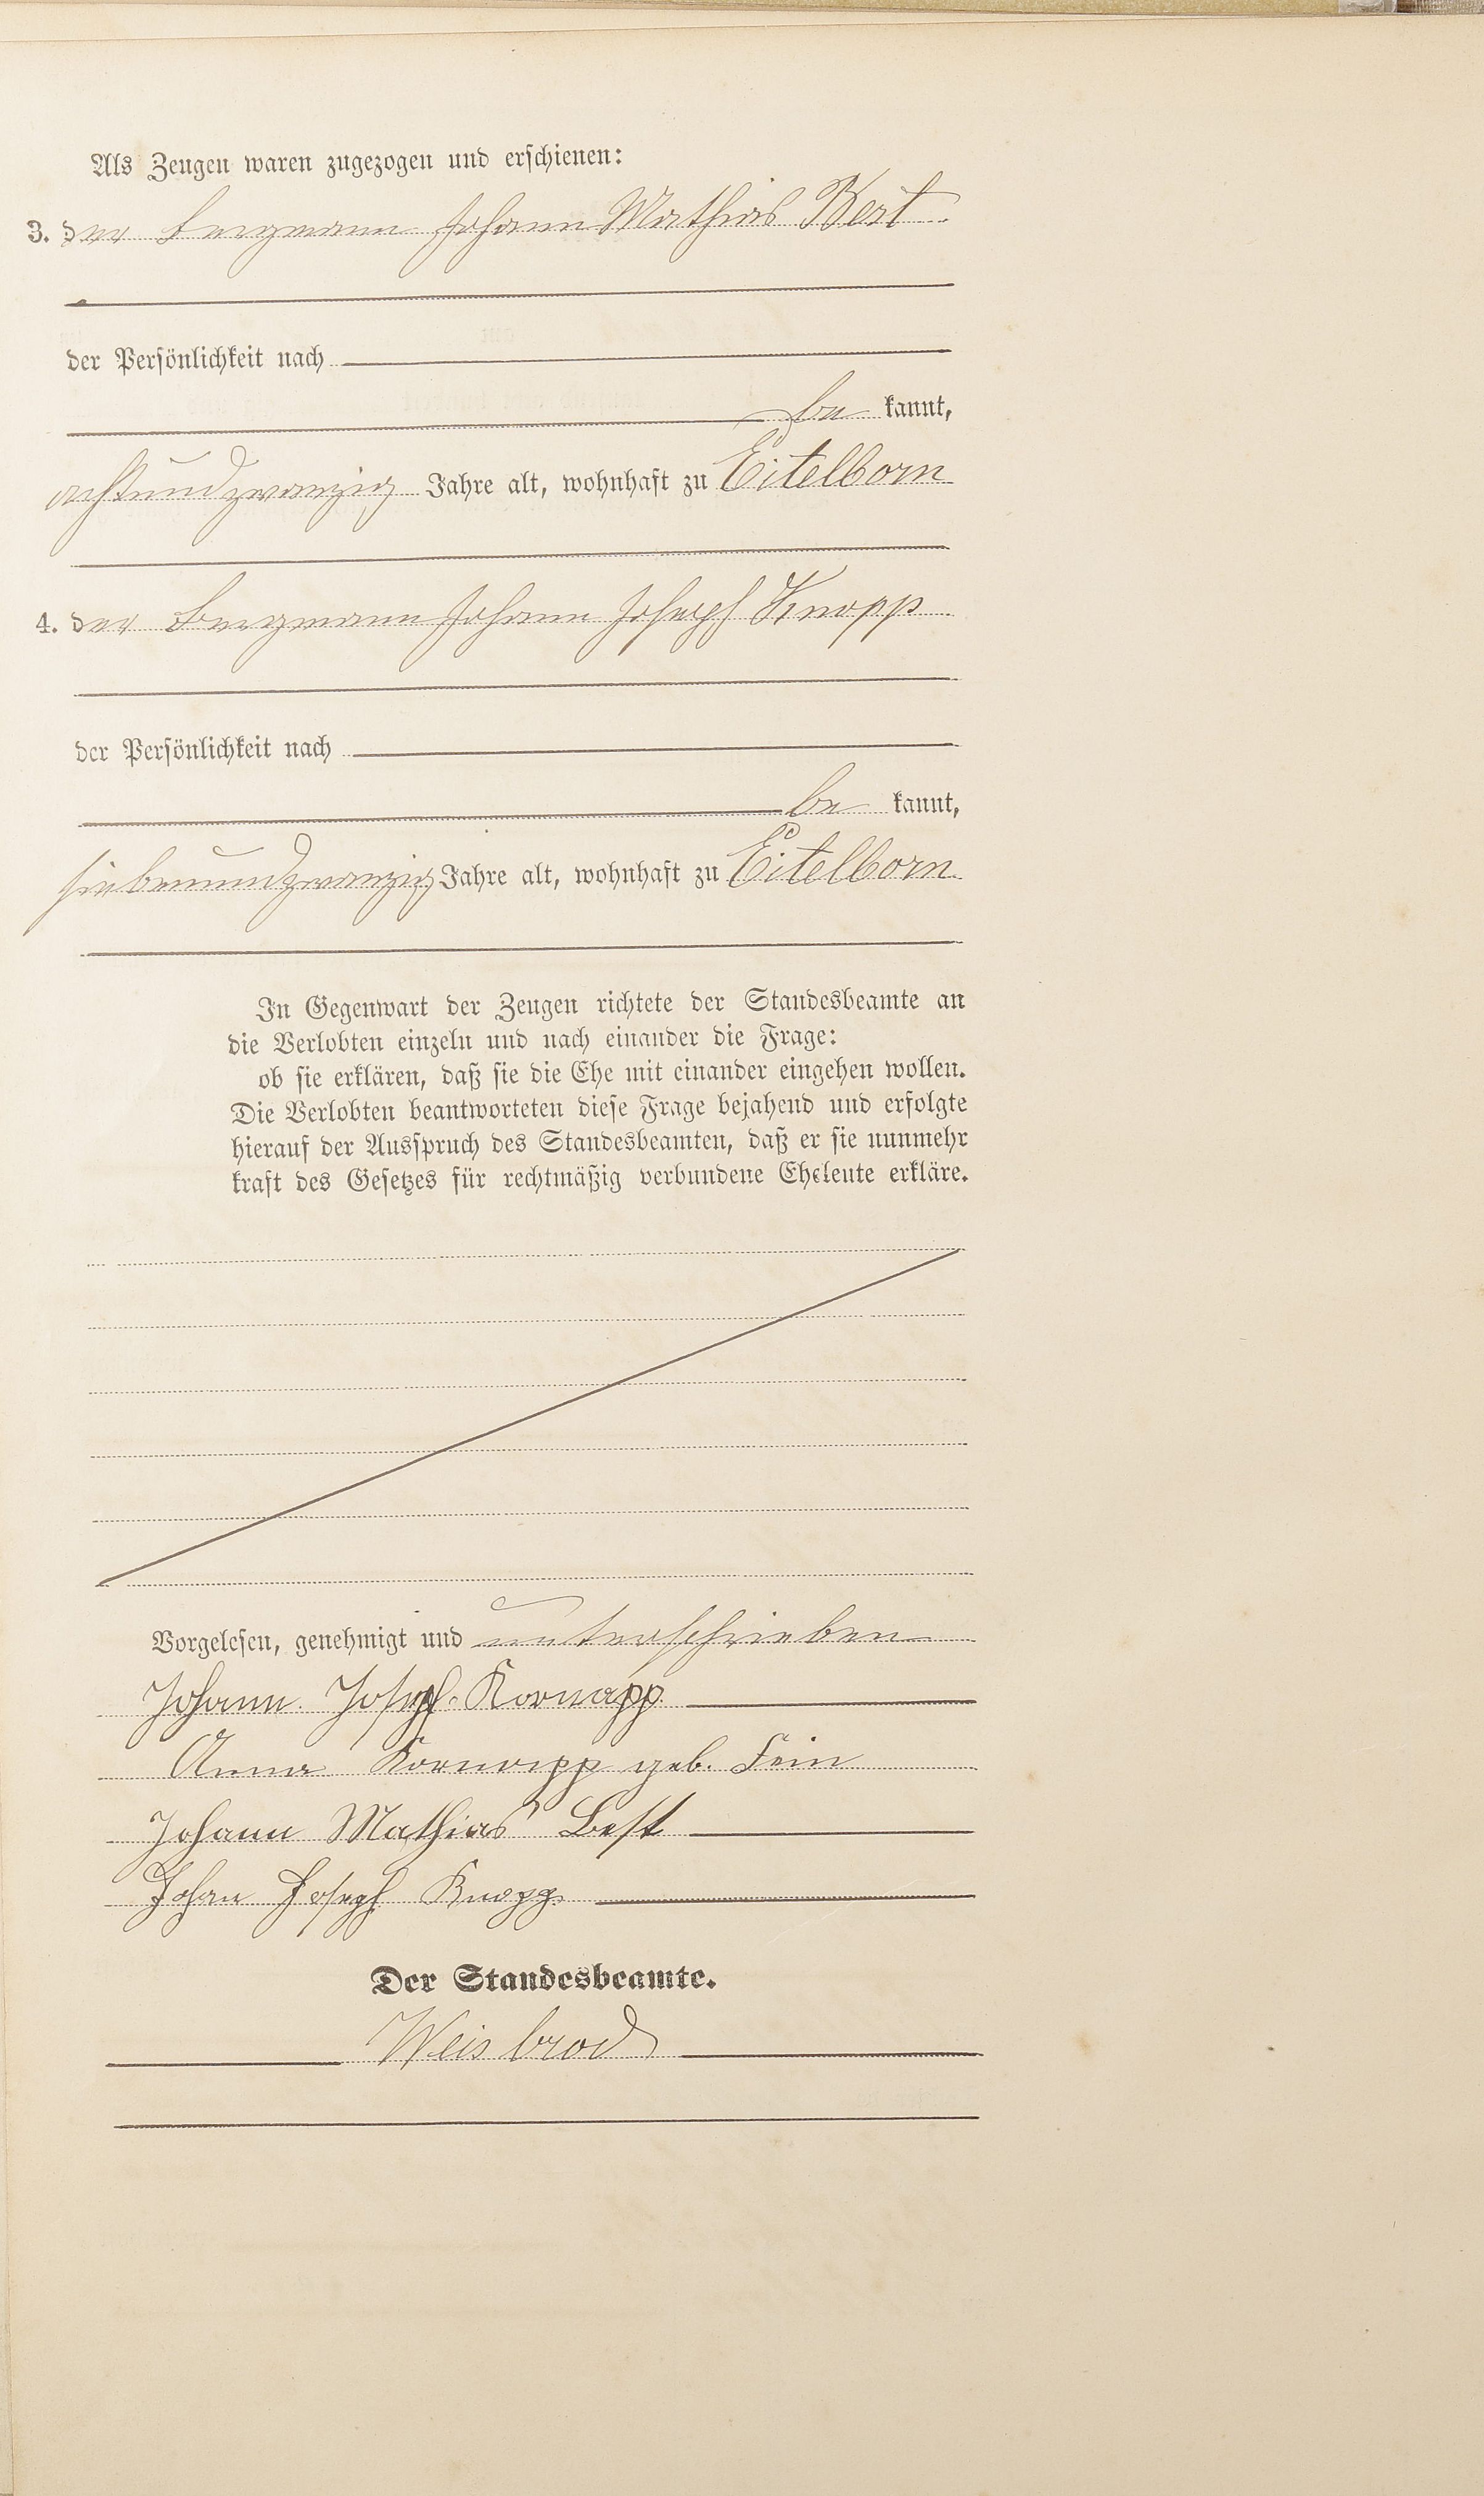 Als Zeugen waren zugezogen und erschienen:
3. der Bergmann Johann Mathias Best
der Persönlichkeit nach
be kannt,
achtundzwanzig Jahre alt, wohnhaft zu Eitelborn
4. der Bergmann Johann Joseph Knopp
der Persönlichkeit nach
be kannt,
siebenundzwanzig Jahre alt, wohnhaft zu Eitelborn
In Gegenwart der Zeugen richtete der Standesbeamte an
die Verlobten einzeln und nach einander die Frage:
ob sie erklären, daß sie die Ehe mit einander eingehen wollen.
Die Verlobten beantworteten diese Frage bejahend und erfolgte
hierauf der Ausspruch des Standesbeamten, daß er sie nunmehr
kraft des Gesetzes für rechtmäßig verbundene Eheleute erkläre.
Vorgelesen, genehmigt und unterschrieben
Johann Joseph Kornapp
Anna Kornapp geb. Fein
Johann Mathias Best
Johan Joseph Knopp
Der Standesbeamte.
Weisbrod